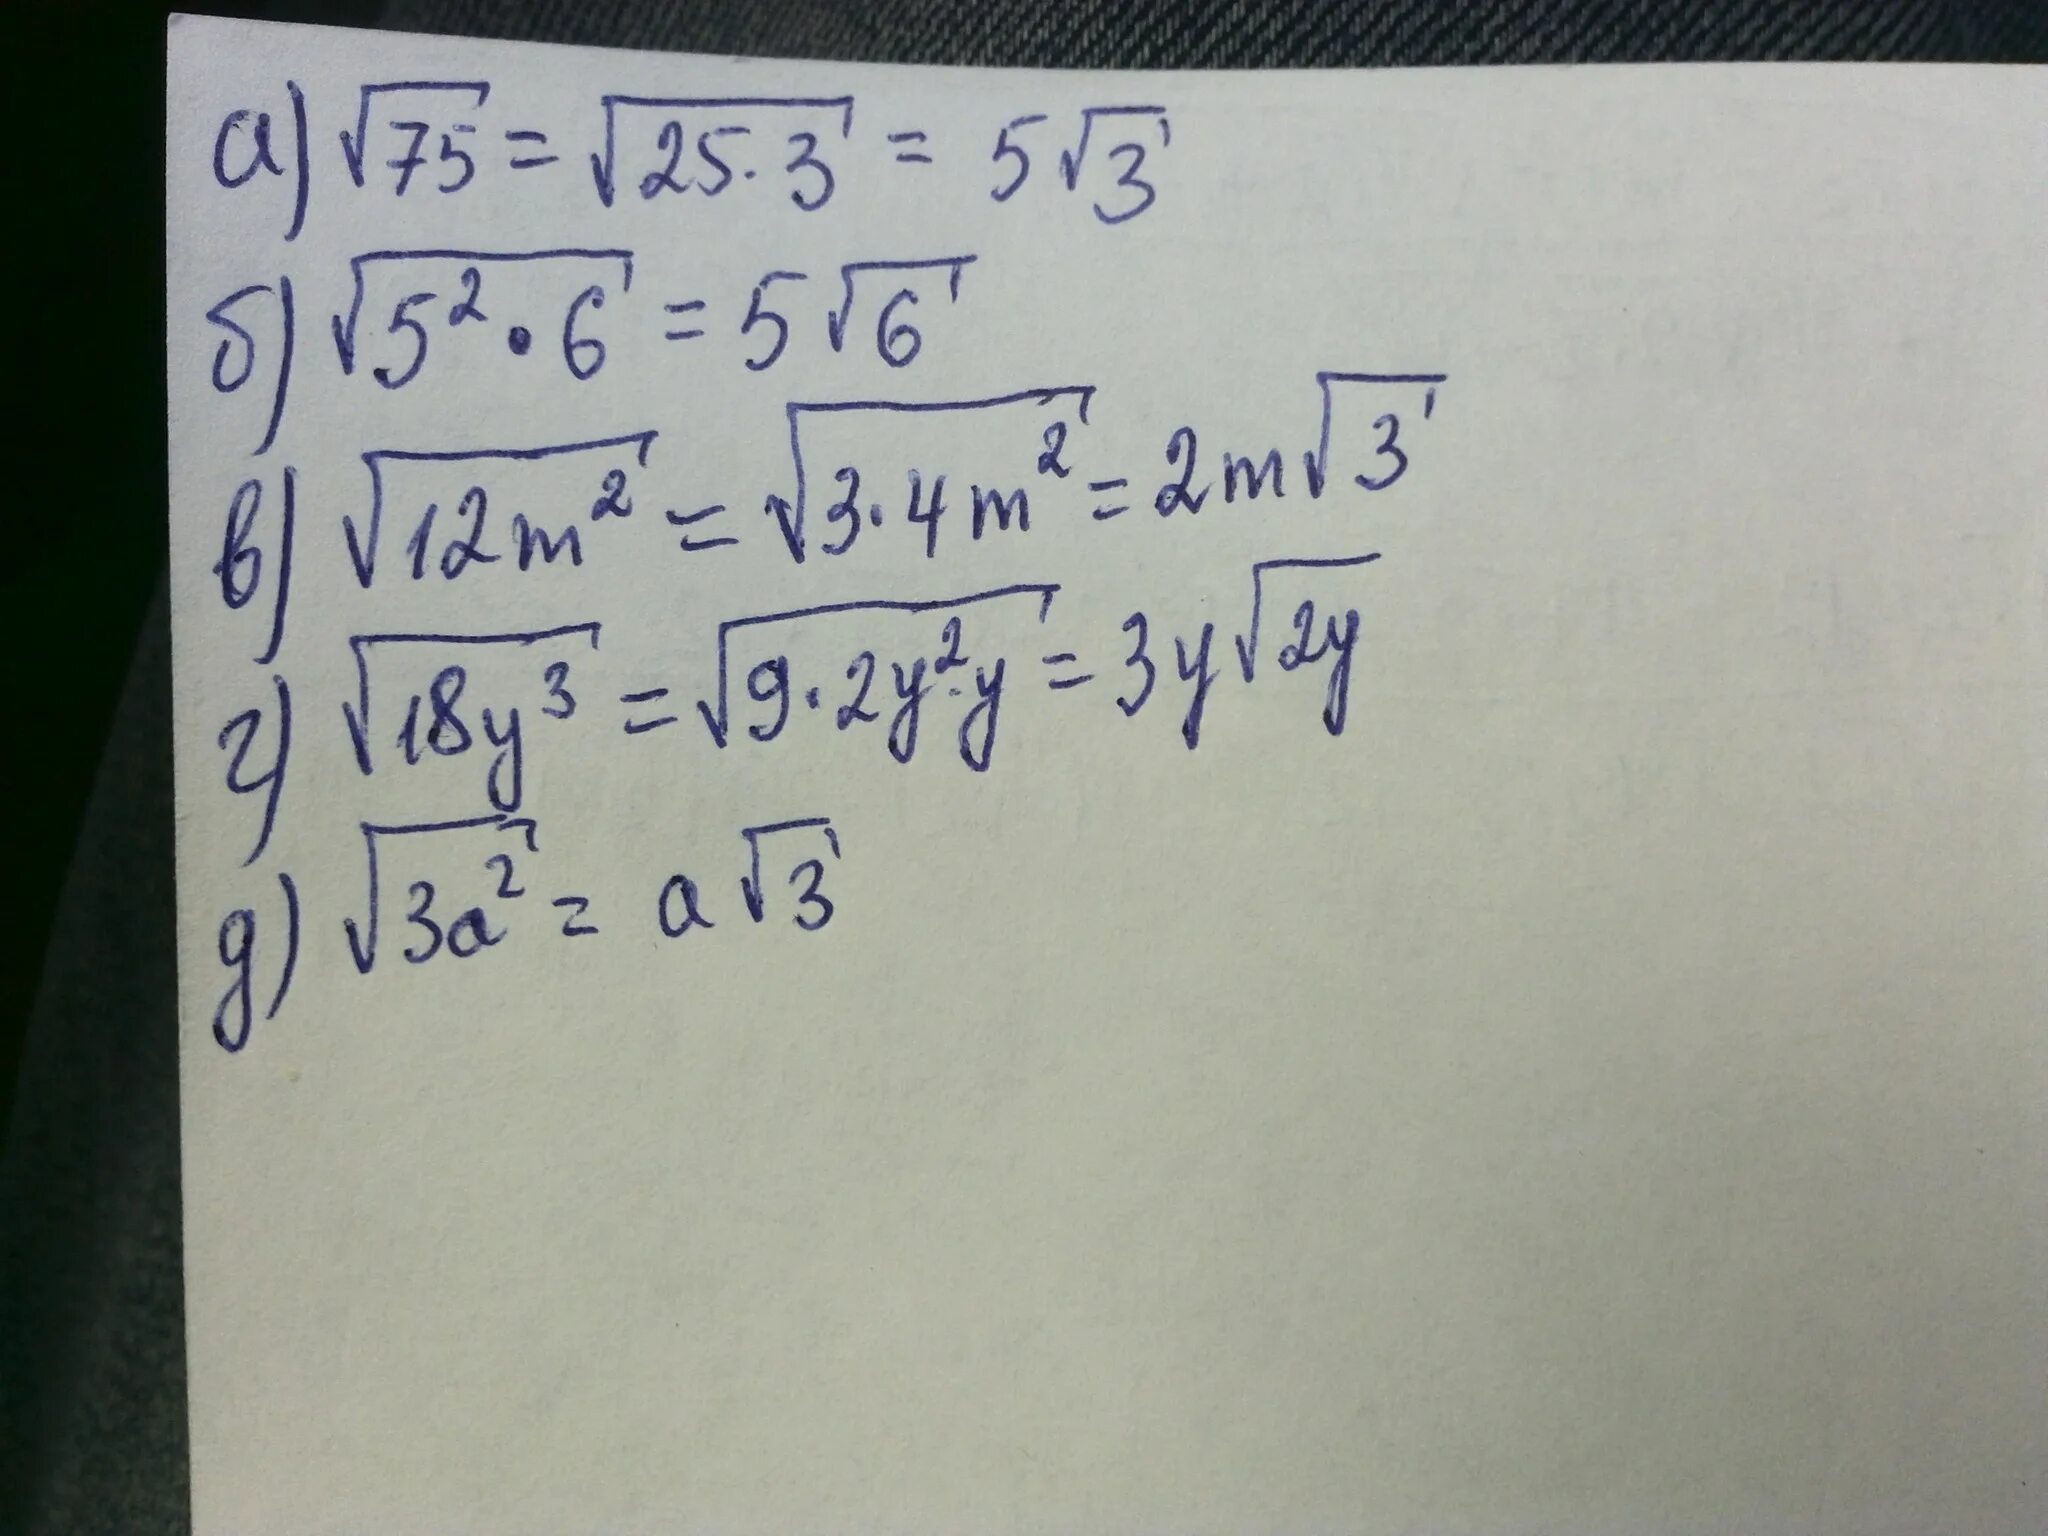 а) √75 = √25·3 = 5√3
б) √5²·6 = 5√6
в) √12m² = √3·4m² = 2m√3
г) √18y³ = √9·2y²·y = 3y√2y
д) √3a² = a√3